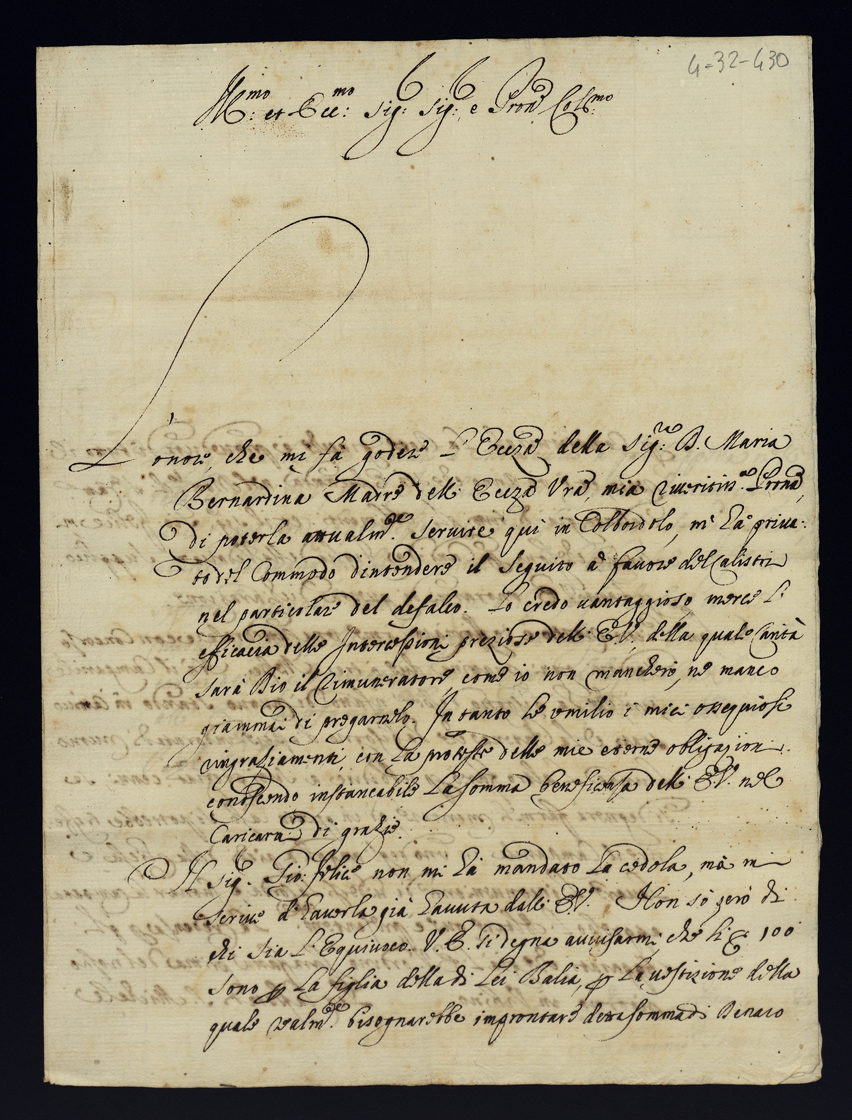 4-32-430
Ill.mo et Ecc.mo Sig.r Sig.r e Pron Col.mo
L'onore, che mi fa godere L'Ecc.za della Sig.ra D. Maria
Bernardina Madre dell'Ecc.za Vra, mia riveritis.ma Prona,
di poterla attualm.te servire qui in Colbordolo, m'hà priva:
to del Commodo d'intendere il seguito à favore del Calistri
nel particolare del defalco. Lo credo vantaggioso mercè L'
efficacia delle Intercessioni preziose dell'E.V. della quale Carità
sarà Dio il rimuneratore, come io non mancherò, nè manco
giammai di pregarnelo. In tanto Le umilio i miei ossequiosi
ringraziamenti, con La proteste delle mie eterne obligazioni:
conoscendo instancabile La somma beneficenza dell'E.V. nel
Caricarmi di grazie.
Il Sig.r Gio: Felice non mi hà mandato La cedola, mà mi
scrive d'haverla già havuta dall'E.V. Non sò però di
chi sia L'Equivoco. V.E. si degna avvisarmi che li 100
sono La figlia della di Lei Balia, La vestizione della
quale realm.te bisognarebbe improntare detta somma di Denaro